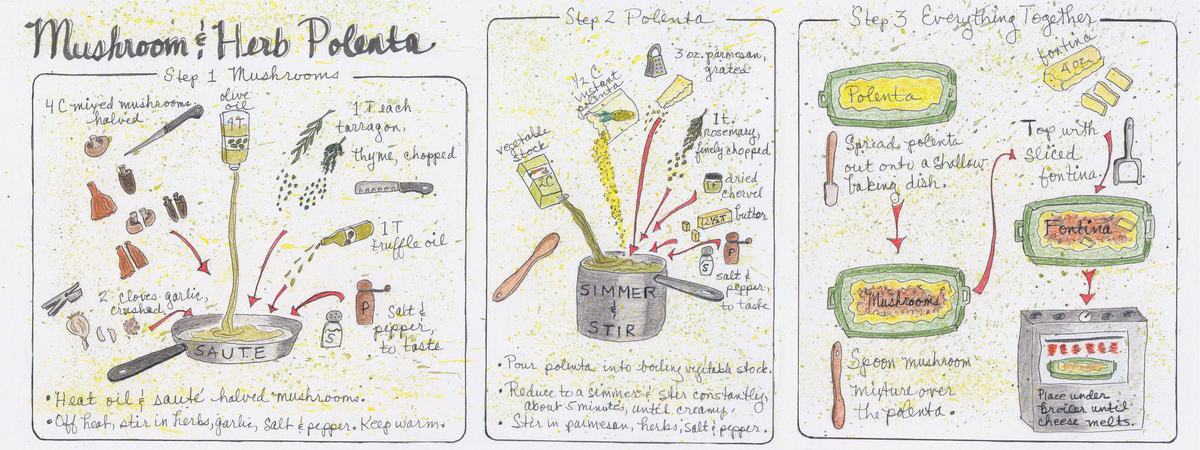 Mushroom & Herb Polenta
Step 1 Mushrooms
4 C mixed mushrooms,
halved
olive
oil
4T
1 T each
tarragon,
thyme, chopped
1 T
truffle oil
2 cloves garlic,
crushed
P
S
Salt &
pepper,
to taste
SAUTE
• Heat oil & sauté halved mushrooms.
• Off heat, stir in herbs, garlic, salt & pepper. Keep warm.
Step 2 Polenta
1/2 C
instant
polenta
3 oz. parmesan,
grated
vegetable
stock
2C
1 t.
rosemary,
finely chopped
dried
chervil
butter
P
S
salt &
pepper,
to taste
SIMMER
&
STIR
• Pour polenta into boiling vegetable stock.
• Reduce to a simmer & stir constantly,
about 5 minutes, until creamy.
• Stir in parmesan, herbs, salt & pepper.
Step 3 Everything Together
Polenta
Spread polenta
out onto a shallow
baking dish.
Mushrooms
Spoon mushroom
mixture over
the polenta.
fontina
4 oz.
Top with
sliced
fontina.
Fontina
Place under
broiler until
cheese melts.